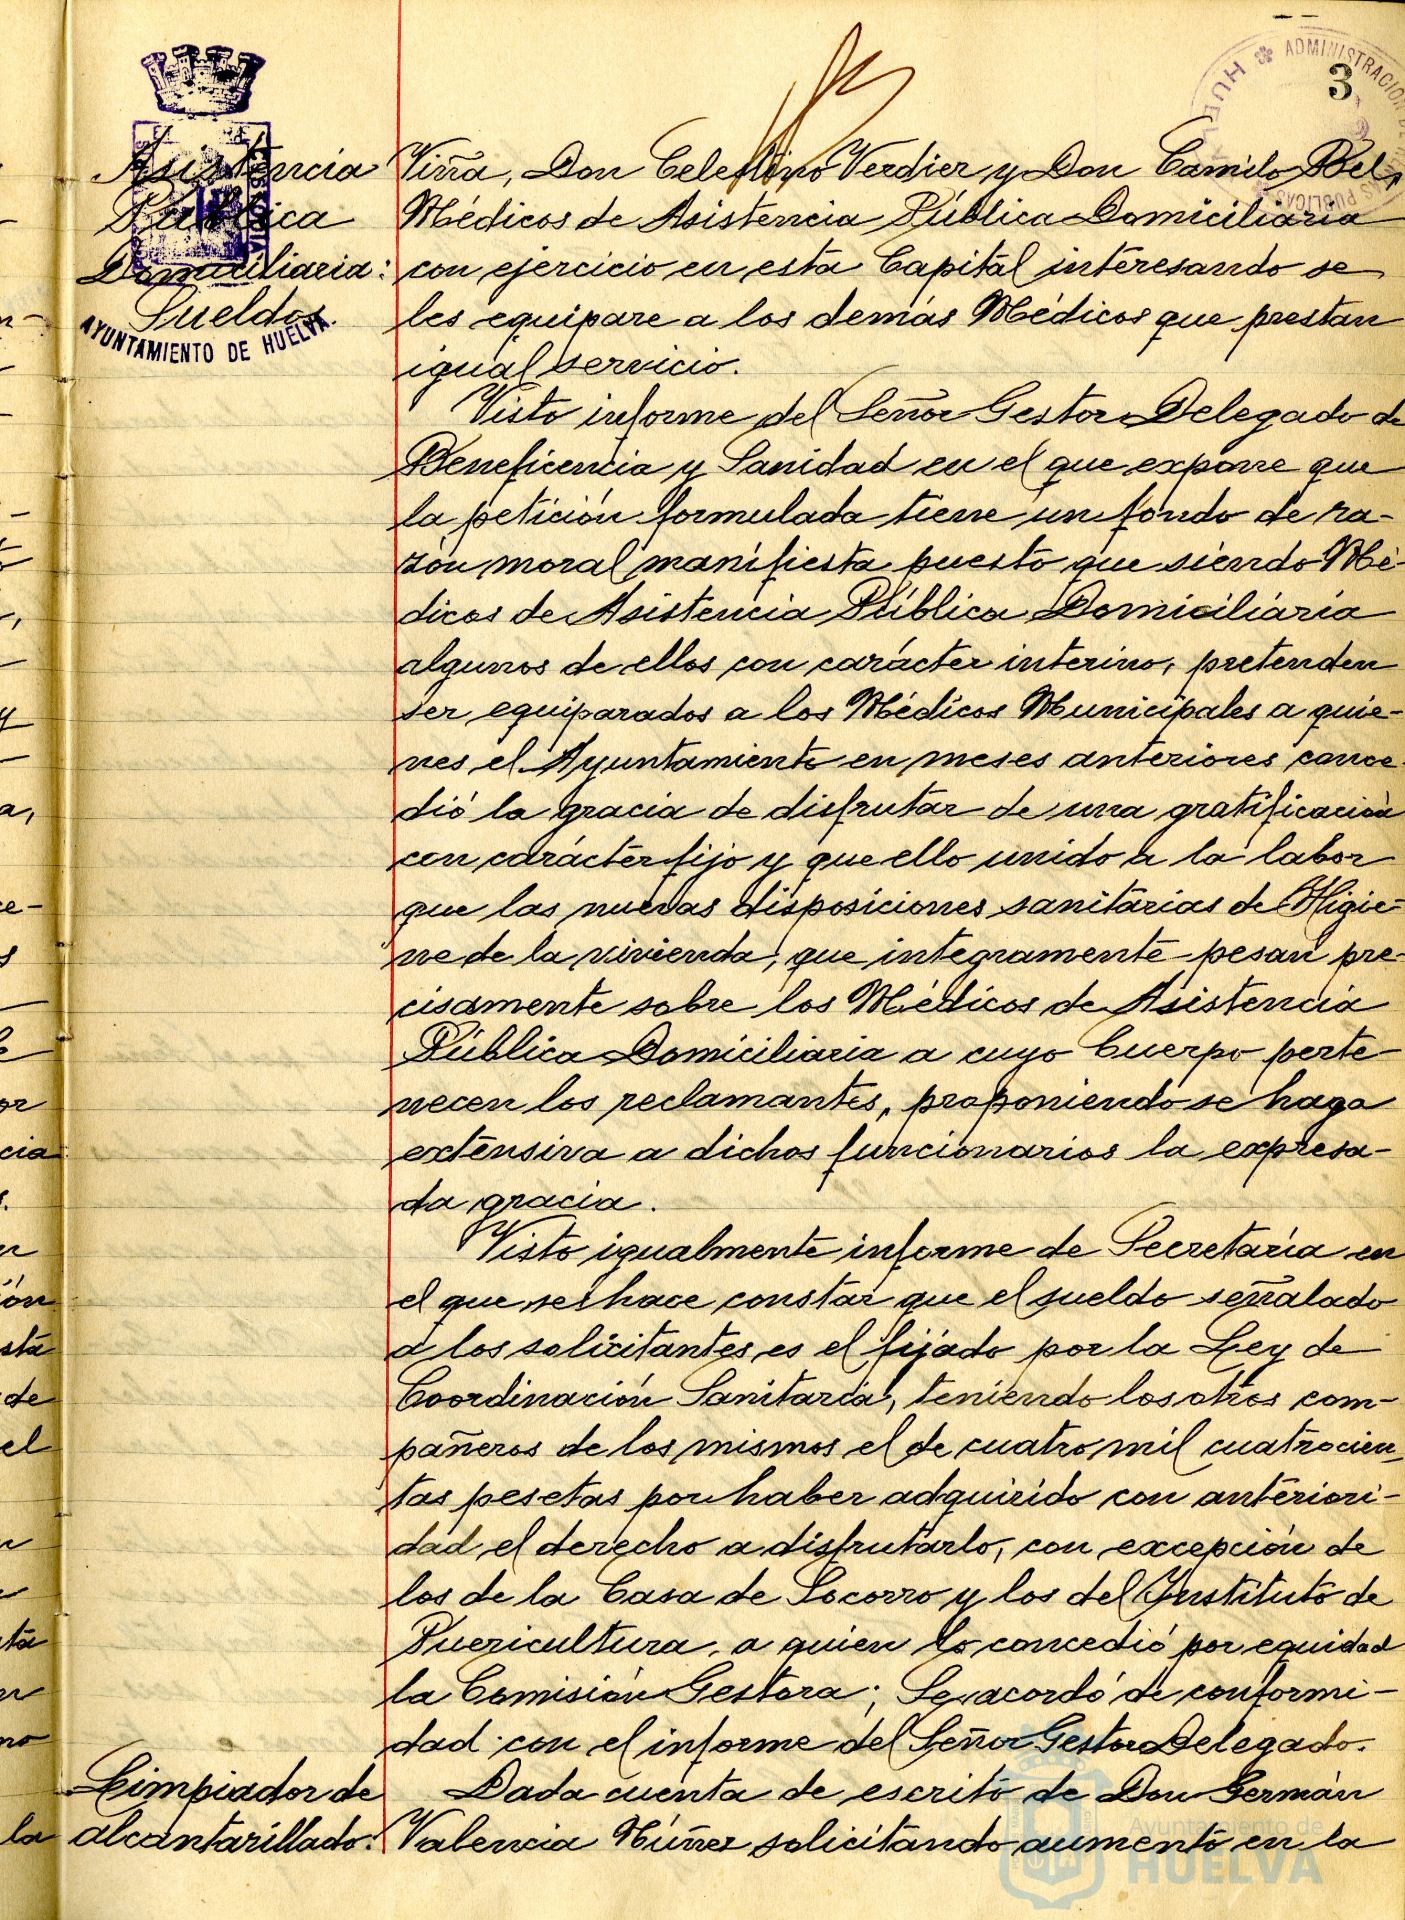 3
HUELVA ADMINISTRACIÓN DE PUBLICAS
Asistencia
Pública
Domiciliaria:
Sueldos.
AYUNTAMIENTO DE HUELVA
Viña, Don Celestino Verdier y Don Camilo Bel,
Médicos de Asistencia Pública Domiciliaria
con ejercicio en esta Capital interesando se
les equipare a los demás Médicos que prestan
igual servicio.
Visto informe del Señor Gestor Delegado de
Beneficencia y Sanidad en el que expone que
la petición formulada tiene un fondo de ra-
zón moral manifiesta puesto que siendo Mé-
dicos de Asistencia Pública Domiciliaria
algunos de ellos con carácter interino, pretenden
ser equiparados a los Médicos Municipales a quie-
nes el Ayuntamiento en meses anteriores conce-
dió la gracia de disfrutar de una gratificación
con carácter fijo y que ello unido a la labor
que las nuevas disposiciones sanitarias de Higie-
ne de la vivienda, que integramente pesan pre-
cisamente sobre los Médicos de Asistencia
Pública Domiciliaria a cuyo Cuerpo perte-
necen los reclamantes, proponiendo se haga
extensiva a dichos funcionarios la expresa-
da gracia.
Visto igualmente informe de Secretaría en
el que se hace constar que el sueldo señalado
a los solicitantes es el fijado por la Ley de
Coordinación Sanitaria, teniendo los otros com-
pañeros de los mismos el de cuatro mil cuatrocien-
tas pesetas por haber adquirido con anteriori-
dad el derecho a disfrutarlo, con excepción de
los de la Casa de Socorro y los del Instituto de
Puericultura, a quien lo concedió por equidad
la Comisión Gestora; Se acordó de conformi-
dad con el informe del Señor Gestor Delegado.
Limpiador de
alcantarillado:
Dada cuenta de escrito de Don Germán
Valencia Núñez solicitando aumento en la
Ayuntamiento de
HUELVA